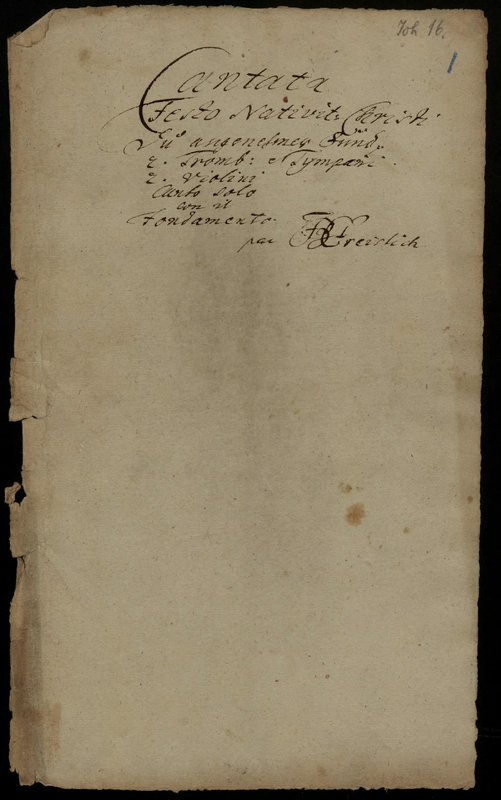 Joh 16.
1
Cantata
Festo Nativit: Christi
Du angenehmer Bund.
2. Tromb: e Tympani.
2. Violini
Canto solo
con il
Fondamento.
par Freislich